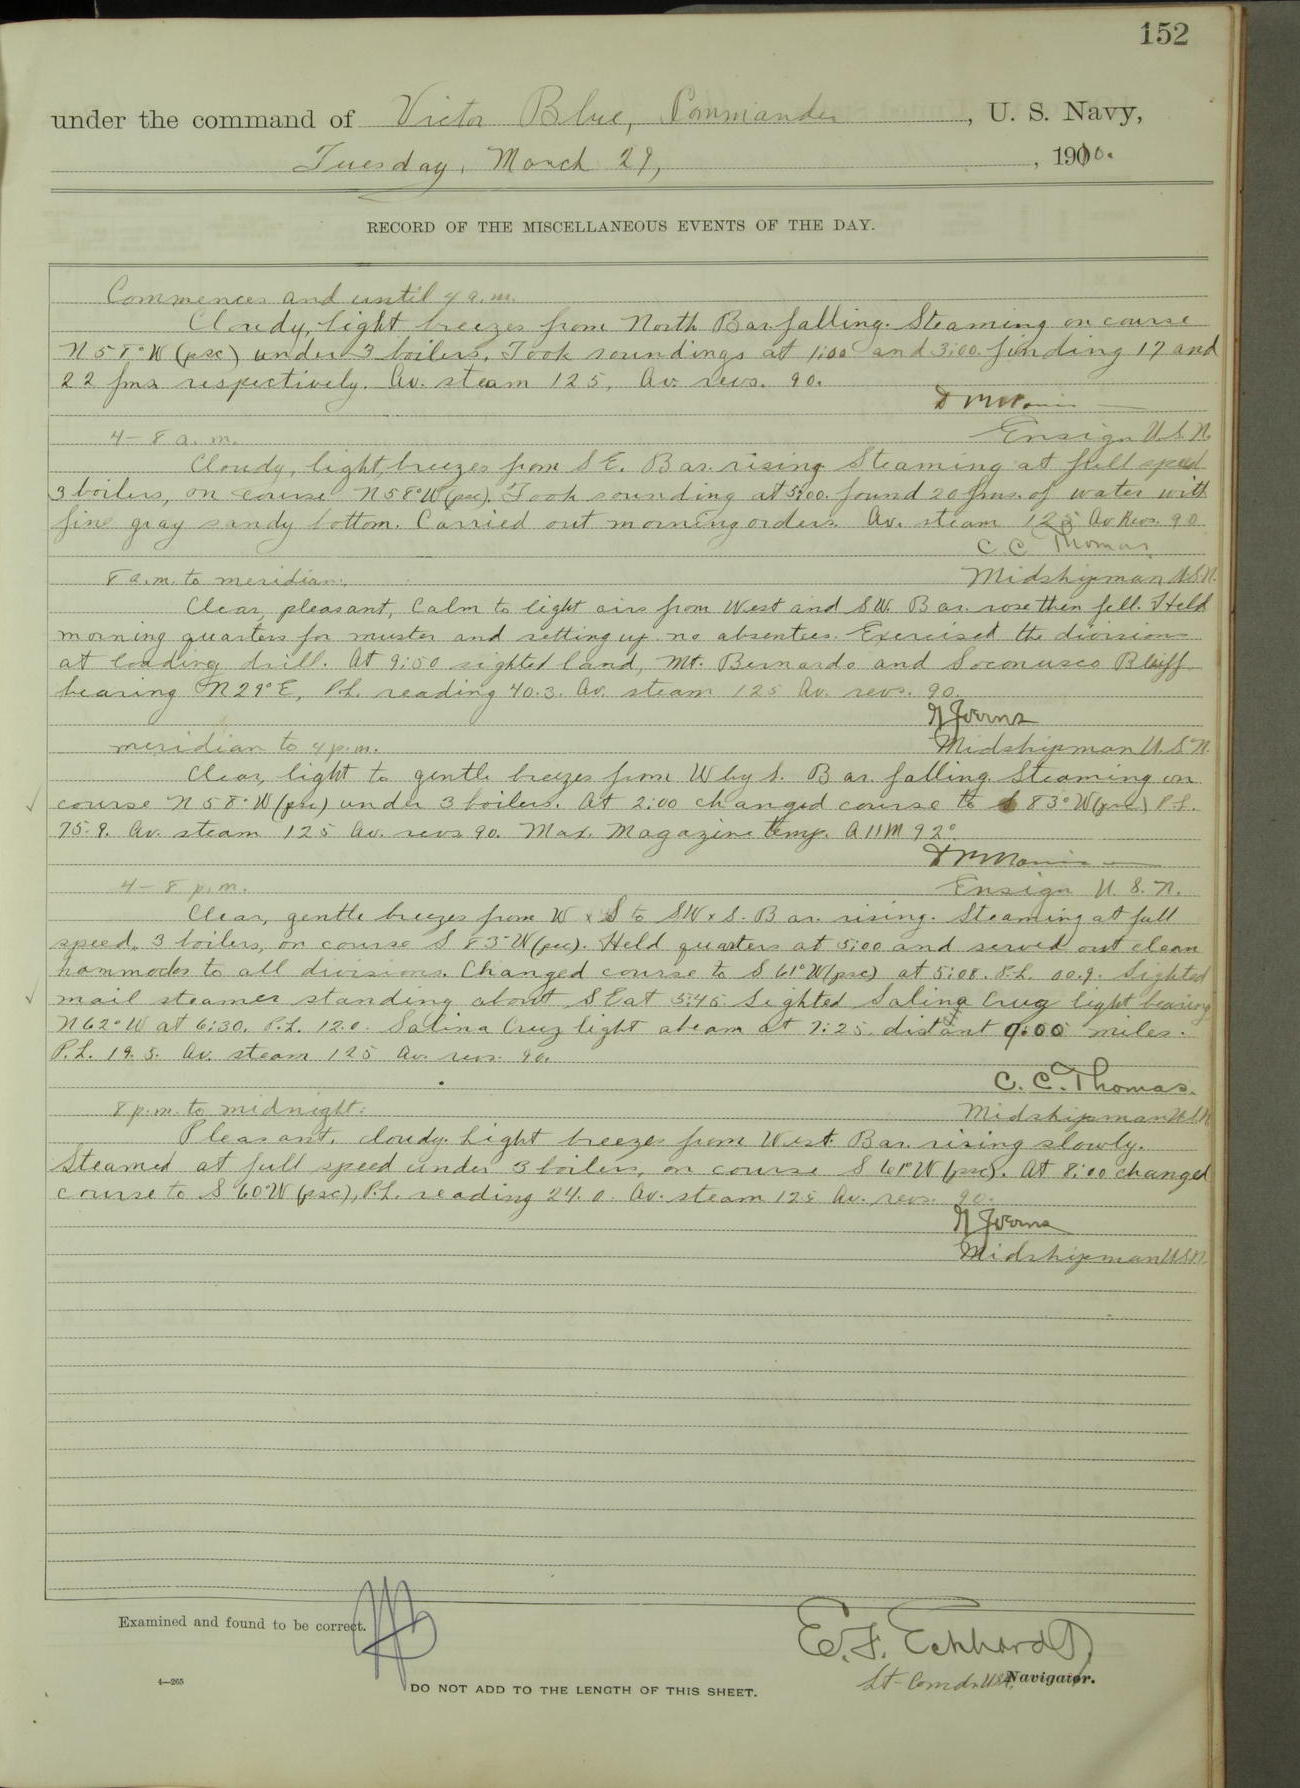 152
under the command of Victor Blue, Commander, U. S. Navy,
Tuesday, March 29, 1910.
RECORD OF THE MISCELLANEOUS EVENTS OF THE DAY.
Commences and until 4 a.m.
Cloudy, light breezes from North Bar. falling. Steaming on course
N 58° W (psc) under 3 boilers. Took soundings at 1:00 and 3:00 finding 17 and
22 fms respectively. Av. steam 125, Av. revs. 90.
Ensign U.S.N.
4 – 8 a. m.
Cloudy, light breezes from S E. Bar. rising. Steaming at full speed
3 boilers, on course N 58° W (psc). Took sounding at 5:00. found 20 fms. of water with
fine gray sandy bottom. Carried out morning orders. Av. steam 125 Av Revs. 90
C. C. Thomas,
Midshipman U.S.N.
8 a.m. to meridian:
Clear, pleasant, Calm to light airs from West and S W. Bar. rose then fell. Held
morning quarters for muster and setting up no absentees. Exercised the divisions
at loading drill. At 9:50 sighted land, Mt. Bernardo and Soconusco Bluff
bearing N 29° E, P.L. reading 40.3. Av. steam 125 Av. revs. 90.
Midshipman U.S.N.
meridian to 4 p.m.
Clear, light to gentle breezes from W by S. Bar. falling. Steaming on
course N 58° W (psc) under 3 boilers. At 2:00 changed course to S 83° W (psc) P.L.
75.8. Av. steam 125 Av. revs 90. Max. Magazine temp. A 11 M 92°
Ensign U. S. N.
4 – 8 p.m.
Clear, gentle breezes from W x S to SW x S. Bar. rising. Steaming at full
speed, 3 boilers, on course S 83° W (psc). Held quarters at 5:00 and served out clean
hammocks to all divisions. Changed course to S 61° W (psc) at 5:08. P.L. 00.9. Sighted
mail steamer standing about S E at 5:45 Sighted Salina Cruz light bearing
N 62° W at 6:30. P.L. 12.0. Salina Cruz light abeam at 7:25, distant 9.00 miles.
P.L. 19.5. Av. steam 125 Av. revs. 90.
C. C. Thomas.
Midshipman U.S.N.
8 p.m. to midnight:
Pleasant, cloudy. Light breezes from West. Bar. rising slowly.
Steamed at full speed under 3 boilers, on course S 61° W (psc). At 8:00 changed
course to S 60° W (psc), P.L. reading 24.0. Av. steam 125 Av. revs. 90.
Midshipman U.S.N.
Examined and found to be correct.
E. F. Eckhardt,
Lt-Comdr. U.S.N. Navigator.
4—265
DO NOT ADD TO THE LENGTH OF THIS SHEET.